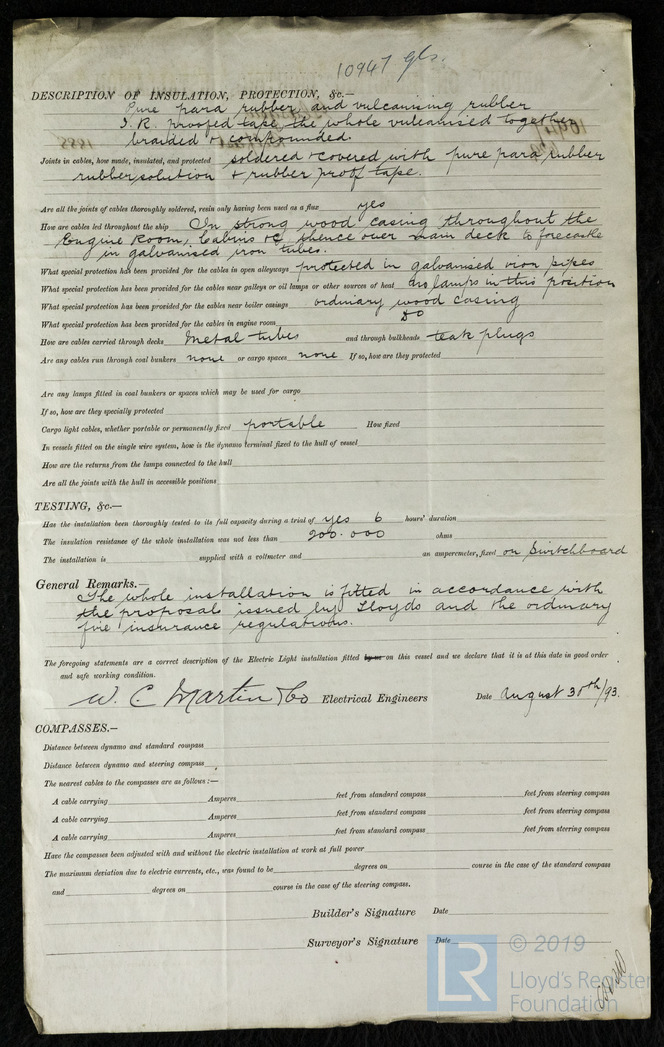 10947 gls.
DESCRIPTION OF INSULATION, PROTECTION, &c.—
Pure para rubber and vulcanising rubber
I.R. proofed tape, the whole vulcanised together
braided & compounded.
Joints in cables, how made, insulated, and protected soldered & covered with pure para rubber
rubber solution & rubber proof tape.
Are all the joints of cables thoroughly soldered, resin only having been used as a flux yes
How are cables led throughout the ship In strong wood casing throughout the
Engine Room, Cabins &c, thence over main deck to forecastle
in galvanised iron tubes.
What special protection has been provided for the cables in open alleyways protected in galvanised iron pipes
What special protection has been provided for the cables near galleys or oil lamps or other sources of heat no lamps in this position
What special protection has been provided for the cables near boiler casings ordinary wood casing
What special protection has been provided for the cables in engine room Do
How are cables carried through decks Metal tubes and through bulkheads teak plugs
Are any cables run through coal bunkers none or cargo spaces none If so, how are they protected
Are any lamps fitted in coal bunkers or spaces which may be used for cargo
If so, how are they specially protected
Cargo light cables, whether portable or permanently fixed portable How fixed
In vessels fitted on the single wire system, how is the dynamo terminal fixed to the hull of vessel
How are the returns from the lamps connected to the hull
Are all the joints with the hull in accessible positions
TESTING, &c.—
Has the installation been thoroughly tested to its full capacity during a trial of yes 6 hours' duration
The insulation resistance of the whole installation was not less than 200.000 ohms
The installation is supplied with a voltmeter and an amperemeter, fixed on Switchboard
General Remarks.—
The whole installation is fitted in accordance with
the proposal issued by Lloyds and the ordinary
fire insurance regulations.
The foregoing statements are a correct description of the Electric Light installation fitted by us on this vessel and we declare that it is at this date in good order
and safe working condition.
W. C. Martin & Co Electrical Engineers Date August 30th/93.
COMPASSES.—
Distance between dynamo and standard compass
Distance between dynamo and steering compass
The nearest cables to the compasses are as follows:—
A cable carrying Amperes feet from standard compass feet from steering compass
A cable carrying Amperes feet from standard compass feet from steering compass
A cable carrying Amperes feet from standard compass feet from steering compass
Have the compasses been adjusted with and without the electric installation at work at full power
The maximum deviation due to electric currents, etc., was found to be degrees on course in the case of the standard compass
and degrees on course in the case of the steering compass.
Builder's Signature Date
Surveyor's Signature Date
LR
© 2019
Lloyd's Register
Foundation